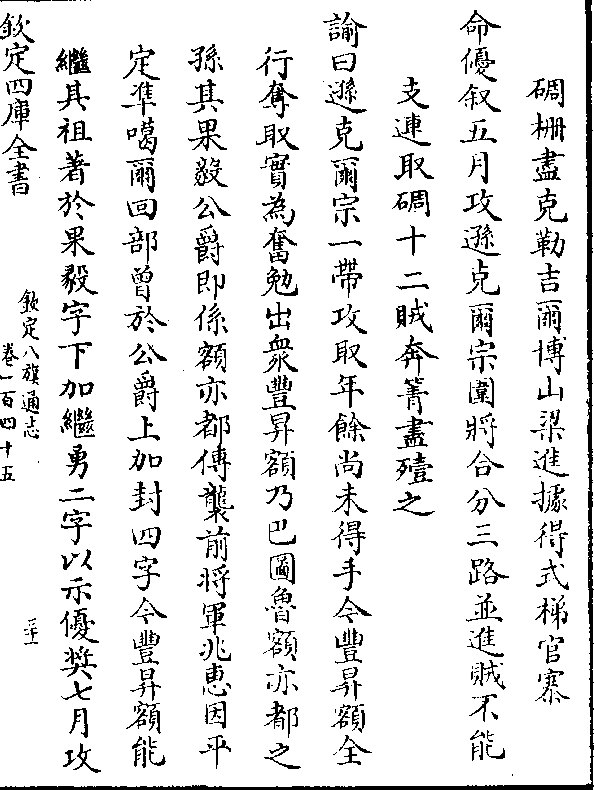 碉柵盡克勒吉爾博山梁進據得式梯官寨
命優叙五月攻遜克爾宗圍將合分三路並進賊不能
支連取碉十二賊奔箐盡殪之
諭曰遜克爾宗一帶攻取年餘尚未得手今豐昇額全
行奪取實為奮勉出衆豐昇額乃巴圖魯額亦都之
孫其果毅公爵即係額亦都傳襲前將軍兆惠因平
定準噶爾回部曾於公爵上加封四字今豐昇額能
繼其祖著於果毅字下加繼勇二字以示優奬七月攻
欽定四庫全書
欽定八旗通志
卷一百四十五
三十一